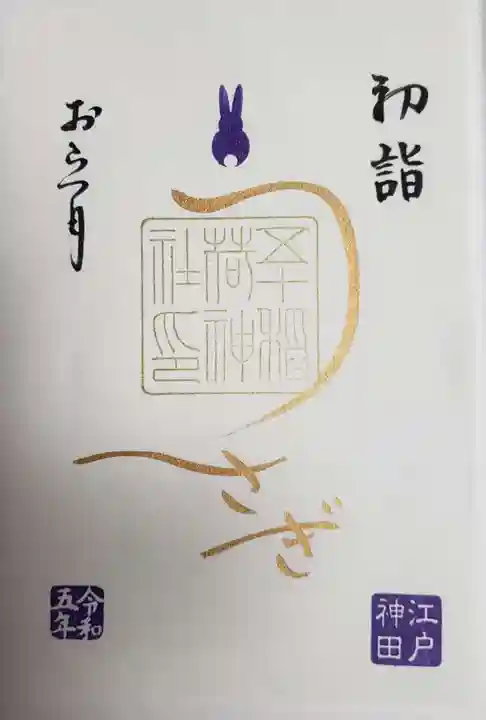 初詣
うさぎ
五十稲
荷神
社印
お正月
江戸
神田
令和
五年